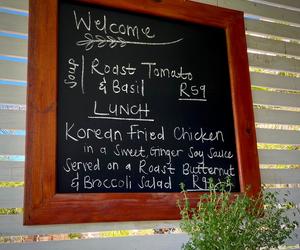 Welcome
Soup Roast Tomato
& Basil R59
LUNCH
Korean Fried Chicken
in a Sweet, Ginger Soy Sauce
Served on a Roast Butternut
& Broccoli Salad